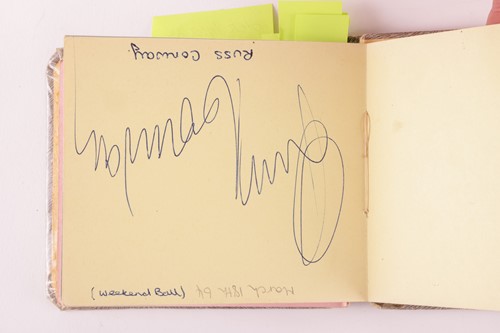 Russ Conway.
Russ Conway
March 18th 64
(Weekend Ball)